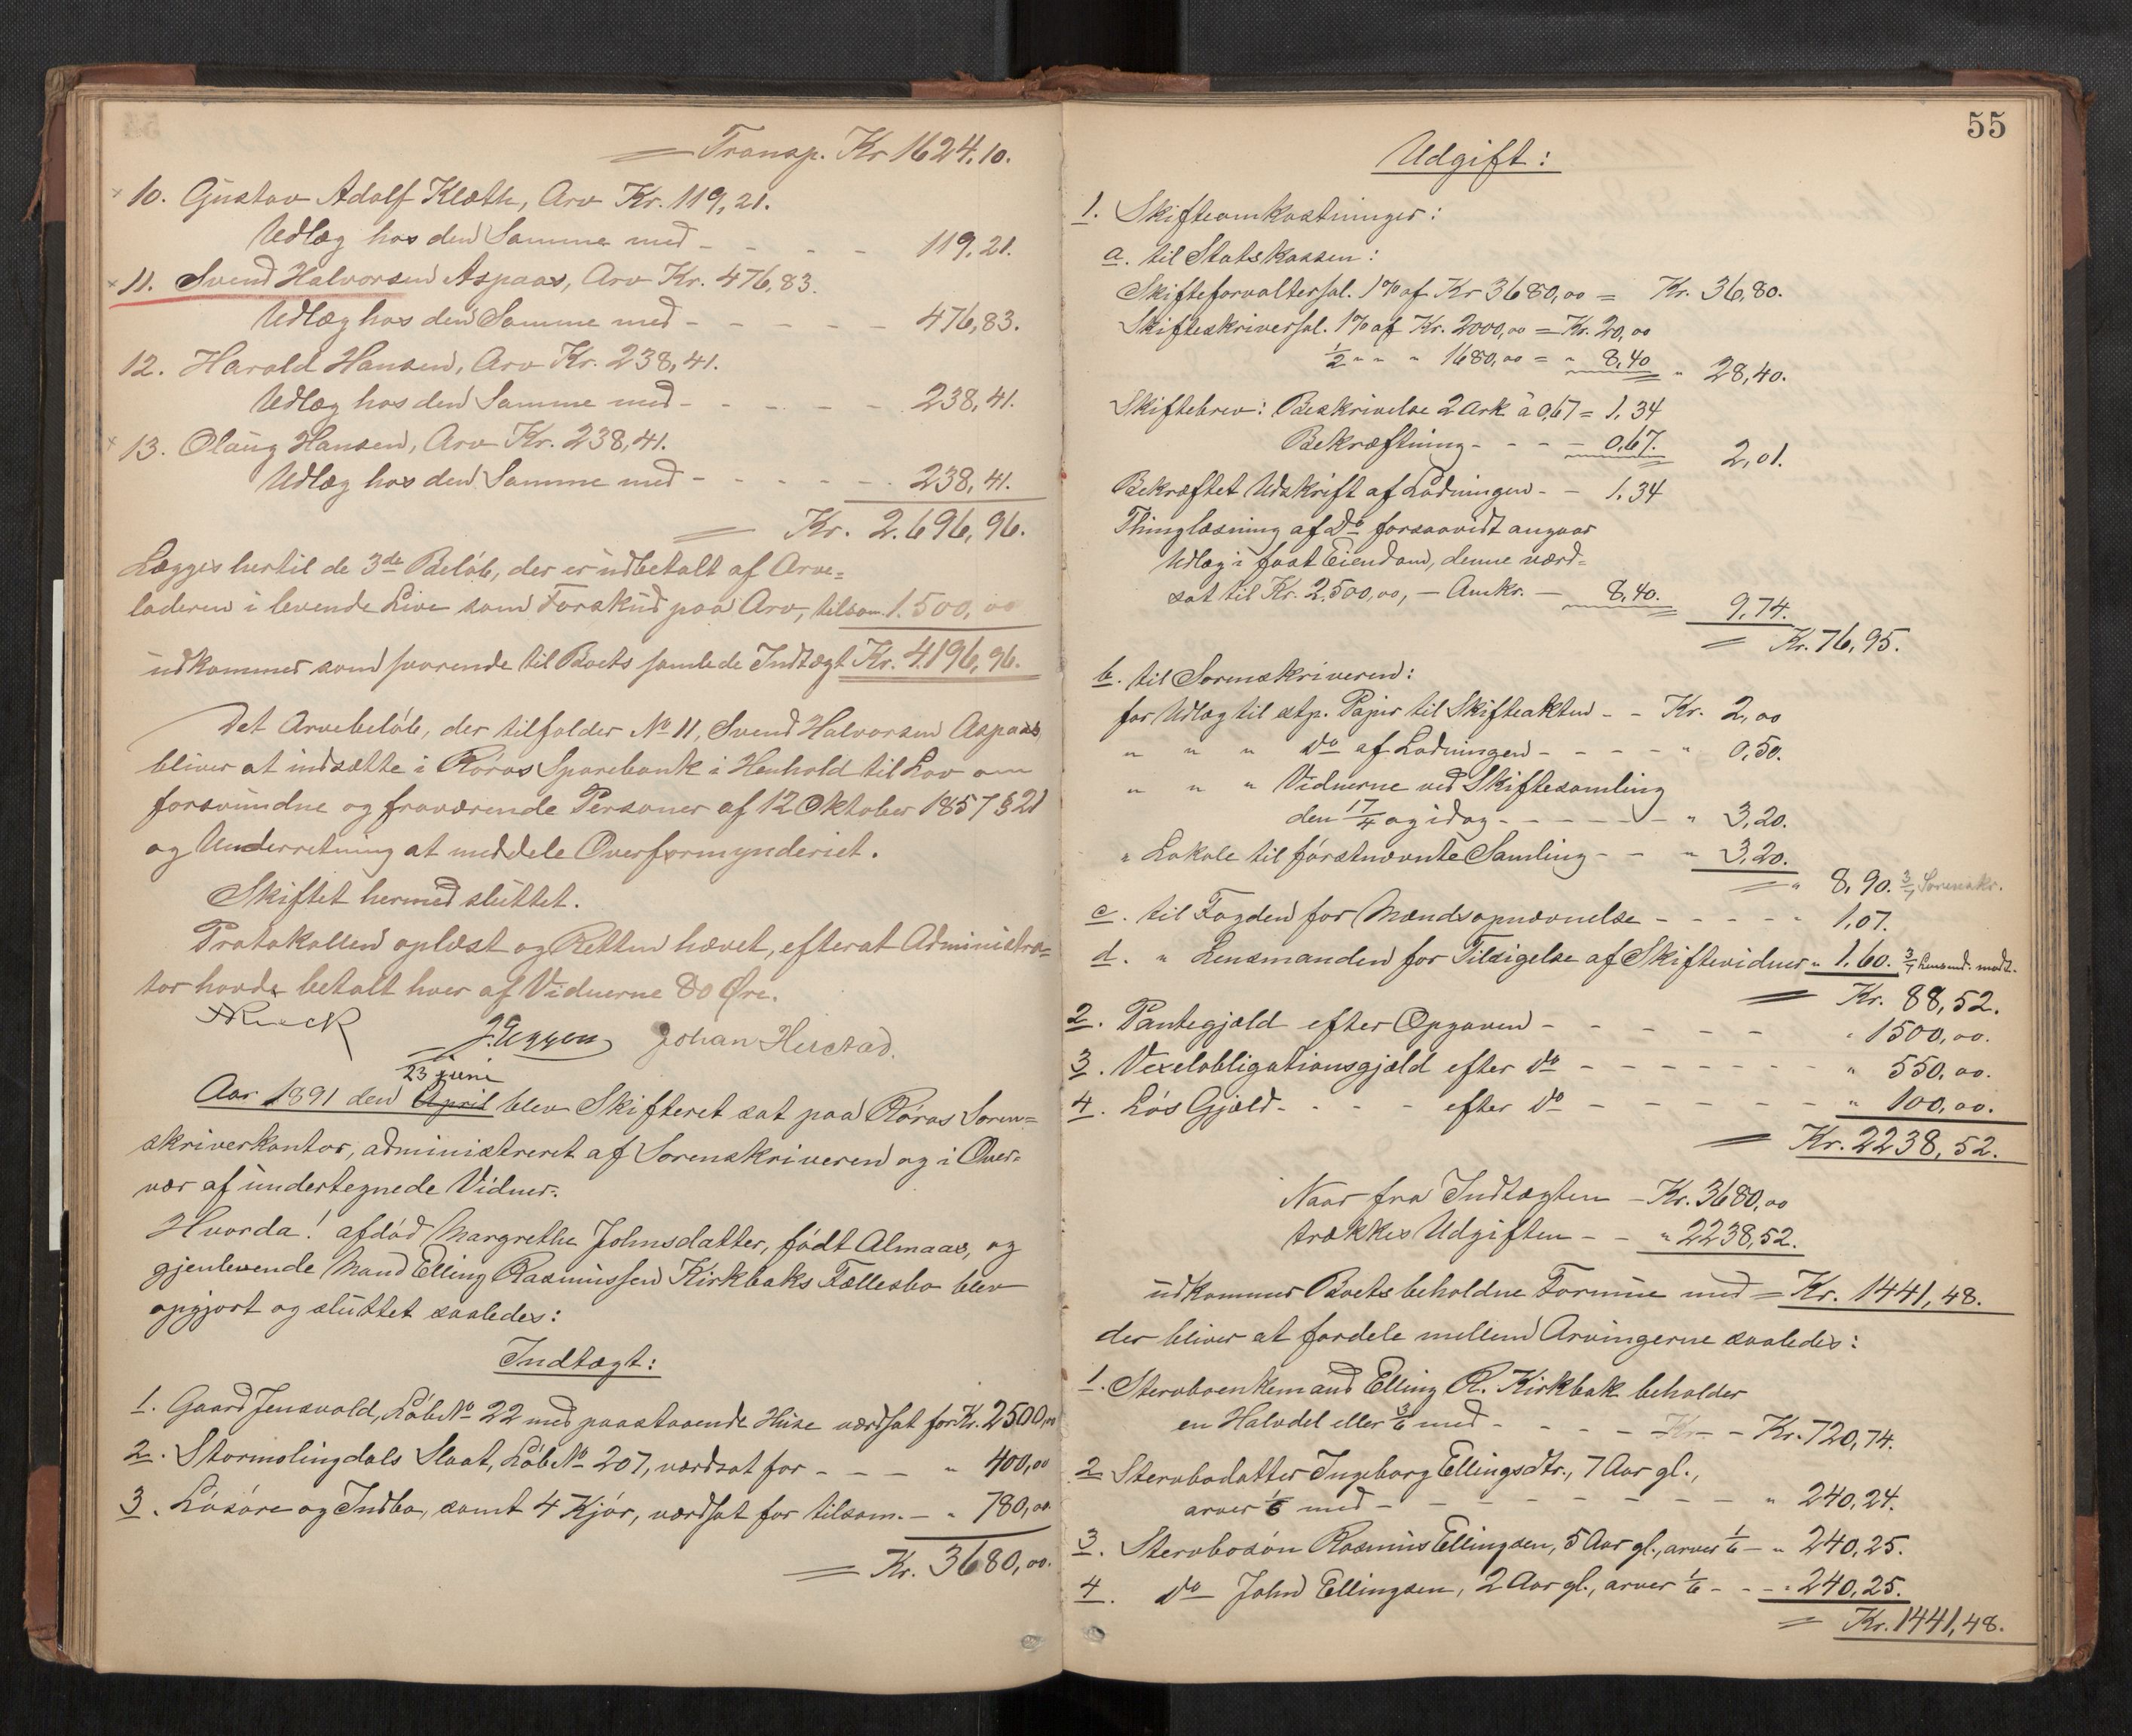 Transp. Kr 1624,10.
10. Gustav Adolf Klæth, Arv Kr. 119,21.
Udlæg hos den Samme med - - - - 119,21.
11. Svend Halvorsen Aspaas, Arv Kr. 476,83.
Udlæg hos den Samme med - - - - - 476,83.
12. Harald Hansen, Arv Kr. 238,41.
Udlæg hos den Samme med - - - - - 238,41.
13. Olaug Hansen, Arv Kr. 238,41.
Udlæg hos den Samme med - - - - - 238,41.
= Kr. 2.696,96.
Lægges hertil de 3de Beløb, der er udbetalt af Arve=
laderen i levende Live som Forskud paa Arv, tilsam. 1.500,00
udkommer som svarende til Boets samlede Indtægt Kr. 4.196,96.
Det Arvebeløb, der tilfalder No 11, Svend Halvorsen Aspaas,
bliver at indsætte i Røros Sparebank i Henhold til Lov om
forsvundne og fraværende Personer af 12 Oktober 1857 § 21
og Underretning at meddele Overformynderiet.
Skiftet hermed sluttet.
Protokollen oplæst og Retten hævet, efterat Administra=
tor havde betalt hver af Vidnerne 80 Øre.
Johan Herstad.
23 juni
Aar 1891 den April blev Skifteret sat paa Røros Soren=
skriverkontor, administreret af Sorenskriveren og i Over=
vær af undertegnede Vidner.
Hvorda! afdød Margrethe Johnsdatter, født Almaas, og
gjenlevende Mand Elling Rasmussen Kirkbaks Fællesbo blev
opgjort og sluttet saaledes:
Indtægt:
1. Gaard Jensvold, LøbNo 22 med paastaaende Huse værdsat for Kr. 2500,00
2. Stormolingdals Slaat, LøbNo 207, værdsat for - - - " 400,00
3. Løsøre og Indbo, samt 4 Kjør, værdsat for tilsam. - " 780,00.
= Kr. 3680,00.
55
Udgift:
1. Skifteomkostninger:
a. til Statskassen:
Skifteforvaltersal. 1% af Kr 3680,00 = Kr. 36,80.
Skifteskriversal. 1% af Kr. 2000,00 = Kr. 20,00
1/2 " " " 1680,00 = " 8,40 " 28,40.
Skiftebrev: Beskrivelse 2 Ark à 0,67 = 1,34
Bekræftning - - - - 0,67. 2,01.
Bekræftet Udskrift af Lodningen - - 1,34
Thinglæsning af do forsaavidt angaar
Udlæg i fast Eiendom, denne værd=
sat til Kr. 2.500,00, - Omkr. - 8,40. 9,74.
= Kr. 76,95.
b. til Sorenskriveren:
for Udlæg til stp. Papir til Skifteakten - - Kr. 2,00
" " " do af Lodningen - - - - " 0,50.
" " " Vidnerne ved Skiftesamling
den 17/4 og idag - - - - - - " 3,20.
" Lokale til førstnævnte Samling - - " 3,20.
= " 8,90. 3/7 Sorenskr.
c. til Fogden for Mandsopnævnelse - - - - " 1,07.
d. " Lensmanden for Tilsigelse af Skiftevidner " 1,60. 3/7 Lensmd. modt.
= Kr. 88,52.
2. Pantegjæld efter Opgaven - - - - - " 1500,00.
3. Vexelobligationsgjæld efter do - - - - - - " 550,00.
4. Løs Gjæld - - - - efter do - - - - - - " 100,00.
= Kr. 2238,52.
Naar fra Indtægten - Kr. 3680,00
trækkes Udgiften - - " 2238,52.
udkommer Boets beholdne Formue med = Kr. 1441,48.
der bliver at fordele mellem Arvingerne saaledes:
1. Stervboenkemand Elling R. Kirkbak beholder
en Halvdel eller 3/6 med - - - - - Kr. - - Kr. 720,74.
2. Stervbodatter Ingeborg Ellingsdtr., 7 Aar gl.,
arver 1/6 med - - - - - - - - " 240,24.
3. Stervbosøn Rasmus Ellingsen, 5 Aar gl., arver 1/6 - " 240,25.
4. do John Ellingsen, 2 Aar gl., arver 1/6 - - - " 240,25.
= Kr. 1441,48.